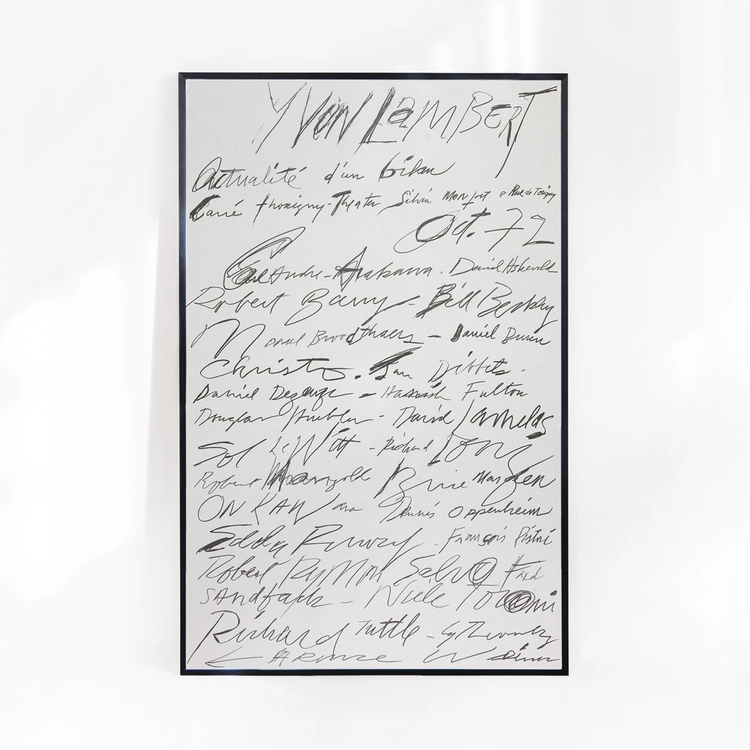 YVON LamBERT
Actualité d'un bilan
Carré Thorigny-Theater Silvia Monfort 8 Rue de Torigny
Oct. 72
Carl Andre - Arakawa . David Askevold
Robert Barry - Bill Beckley
Marcel Broodthaers - Daniel Buren
Christo . Jan Dibbets .
Daniel Dezeuze - Hamish Fulton
Douglas Huebler - David Lamelas
Sol LeWitt - Richard Long
Robert Mangold Brice Marden
ON KAWara Dennis Oppenheim
Edda Renouf - François Ristori
Robert Ryman Salvo Fred
SAndback - Niele Toroni
Richard Tuttle - Cy Twombly
LAWRence Weiner